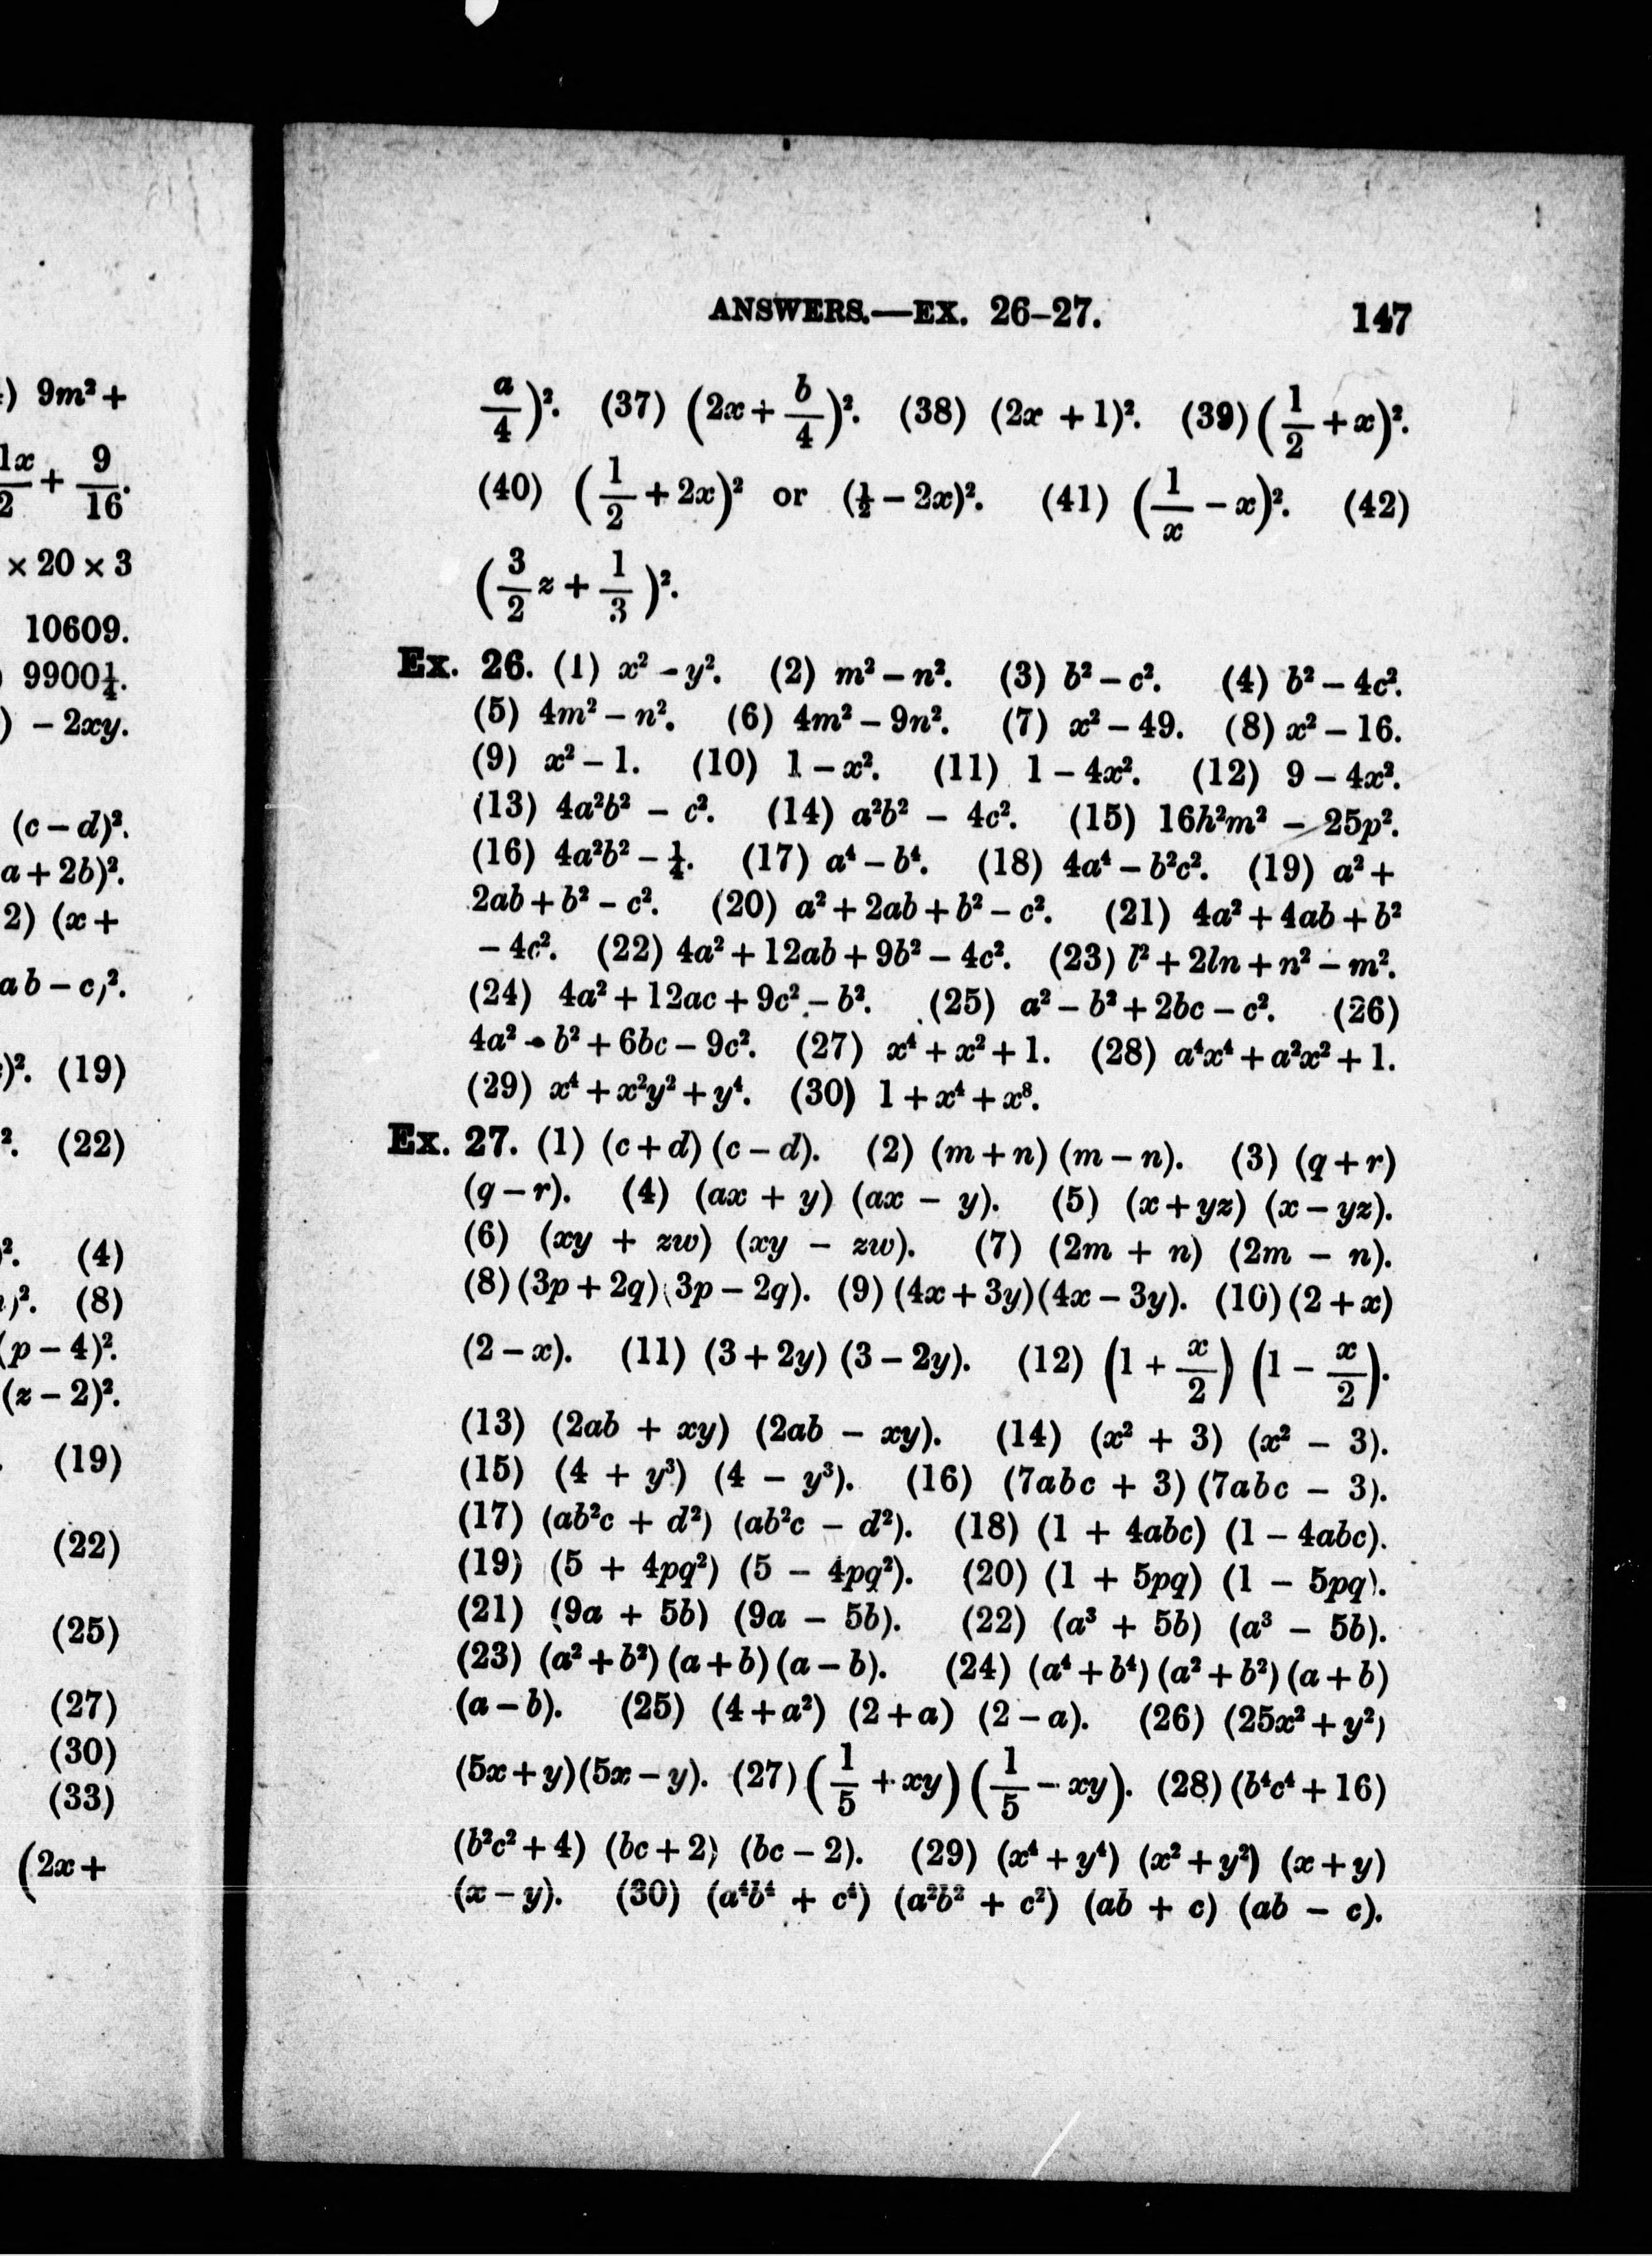 ) 9m² +
1x/2 + 9/16.
× 20 × 3
10609.
9900¼.
) − 2xy.
(c − d)².
a + 2b)².
2) (x +
ab − c)².
)². (19)
². (22)
². (4)
)². (8)
(p − 4)².
(z − 2)².
(19)
(22)
(25)
(27)
(30)
(33)
(2x +
ANSWERS.—EX. 26–27. 147
a/4)². (37) (2x + b/4)². (38) (2x + 1)². (39) (1/2 + x)².
(40) (1/2 + 2x)² or (½ − 2x)². (41) (1/x − x)². (42)
(3/2 z + 1/3)².
Ex. 26. (1) x² − y². (2) m² − n². (3) b² − c². (4) b² − 4c².
(5) 4m² − n². (6) 4m² − 9n². (7) x² − 49. (8) x² − 16.
(9) x² − 1. (10) 1 − x². (11) 1 − 4x². (12) 9 − 4x².
(13) 4a²b² − c². (14) a²b² − 4c². (15) 16h²m² − 25p².
(16) 4a²b² − ¼. (17) a⁴ − b⁴. (18) 4a⁴ − b²c². (19) a² +
2ab + b² − c². (20) a² + 2ab + b² − c². (21) 4a² + 4ab + b²
− 4c². (22) 4a² + 12ab + 9b² − 4c². (23) l² + 2ln + n² − m².
(24) 4a² + 12ac + 9c² − b². (25) a² − b² + 2bc − c². (26)
4a² − b² + 6bc − 9c². (27) x⁴ + x² + 1. (28) a⁴x⁴ + a²x² + 1.
(29) x⁴ + x²y² + y⁴. (30) 1 + x⁴ + x⁸.
Ex. 27. (1) (c + d) (c − d). (2) (m + n) (m − n). (3) (q + r)
(q − r). (4) (ax + y) (ax − y). (5) (x + yz) (x − yz).
(6) (xy + zw) (xy − zw). (7) (2m + n) (2m − n).
(8) (3p + 2q) (3p − 2q). (9) (4x + 3y) (4x − 3y). (10) (2 + x)
(2 − x). (11) (3 + 2y) (3 − 2y). (12) (1 + x/2) (1 − x/2).
(13) (2ab + xy) (2ab − xy). (14) (x² + 3) (x² − 3).
(15) (4 + y³) (4 − y³). (16) (7abc + 3) (7abc − 3).
(17) (ab²c + d²) (ab²c − d²). (18) (1 + 4abc) (1 − 4abc).
(19) (5 + 4pq²) (5 − 4pq²). (20) (1 + 5pq) (1 − 5pq).
(21) (9a + 5b) (9a − 5b). (22) (a³ + 5b) (a³ − 5b).
(23) (a² + b²) (a + b) (a − b). (24) (a⁴ + b⁴) (a² + b²) (a + b)
(a − b). (25) (4 + a²) (2 + a) (2 − a). (26) (25x² + y²)
(5x + y) (5x − y). (27) (1/5 + xy) (1/5 − xy). (28) (b⁴c⁴ + 16)
(b²c² + 4) (bc + 2) (bc − 2). (29) (x⁴ + y⁴) (x² + y²) (x + y)
(x − y). (30) (a⁴b⁴ + c⁴) (a²b² + c²) (ab + c) (ab − c).